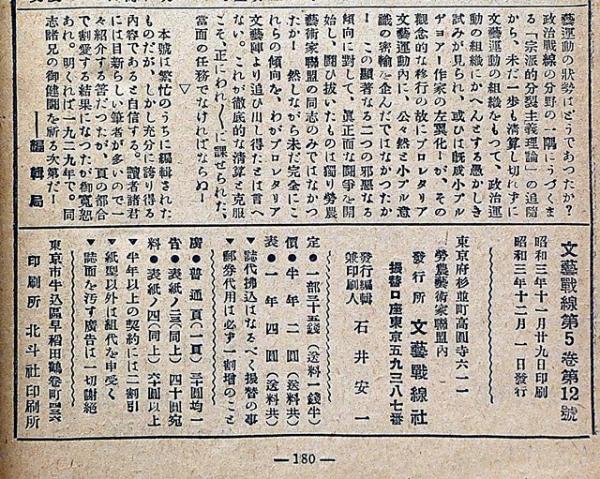 藝運動の狀勢はどうであつたか？
政治戰線の分野の一隅にうづくま
る「宗派的分裂主義理論」の追隨
から、未だ一步も淸算し切れずに
文藝運動の組織をもつて、政治運
動の組織にかへんとする愚かしき
試みが見られ、或ひは旣成小ブル
ヂョアー作家の左翼化！が、その
觀念的な移行の故にプロレタリア
文藝運動內に、公々然と小ブル意
識の密輸を企んだではなかつたか
！この顯著なる二つの邪惡なる
傾向に對して、眞正面な鬪爭を開
始し、鬪ひ拔いたものは獨り勞農
藝術家聯盟の同志のみではなかつ
たか！然しながら未だ完全にこ
れらの傾向を、わがプロレタリア
文藝陣より追ひ出し得たとは言へ
ない。これが徹底的な淸算と克服
こそ、正にわれ〱に課せられた、
當面の任務でなければならぬ！
▽
本號は繁忙のうちに編輯された
ものだが、しかし充分に誇り得る
內容であると自信する。讀者諸君
には目新らしい筆者が多いので一
々紹介する筈だつたが、頁の都合
で割愛する結果になつたが御寬恕
あれ。明くれば一九二九年で。同
志諸兄の御健鬪を祈る次第だ！
―編輯局
文藝戰線第5卷第12號
昭和三年十一月廿九日印刷
昭和三年十二月一日發行
東京府杉並町高圓寺六一二
勞農藝術家聯盟內
發行所 文藝戰線社
振替口座東京五九三八七番
發行編輯
兼印刷人 石井安一
定・一部三十五錢（送料一錢半）
價・半年二圓（送料共）
表・一年四圓（送料共）
▼誌代拂込はなるべく振替の事
▼郵券代用は必ず一割增のこと
廣・普通頁（一頁）三十圓均一
告・表紙ノ三（同上）四十圓宛
料・表紙ノ四（同上）六十圓以上
▼半年以上の契約には二割引
▼紙型以外は組代を申受く
▼誌面を汚す廣告は一切謝絕
東京市牛込區早稻田鶴卷町
印刷所 北斗社印刷所
―180―